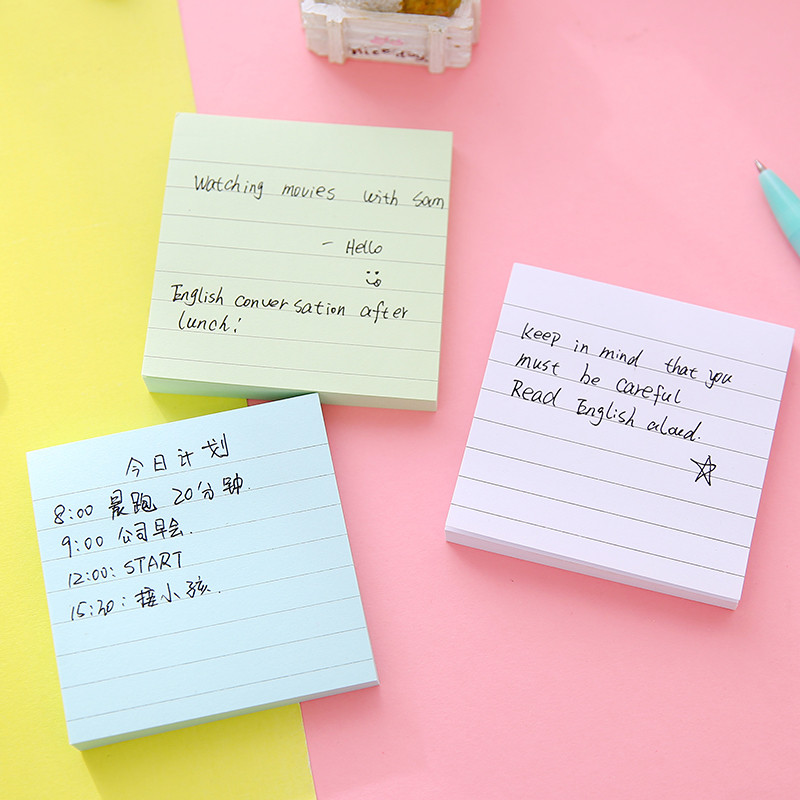 Nice day
Watching movies with Sam
- Hello
English conversation after
lunch!
keep in mind that you
must be careful
Read English aloud.
今日计划
8:00 晨跑 20分钟.
9:00 公司早会.
12:00: START
15:30: 接小孩.